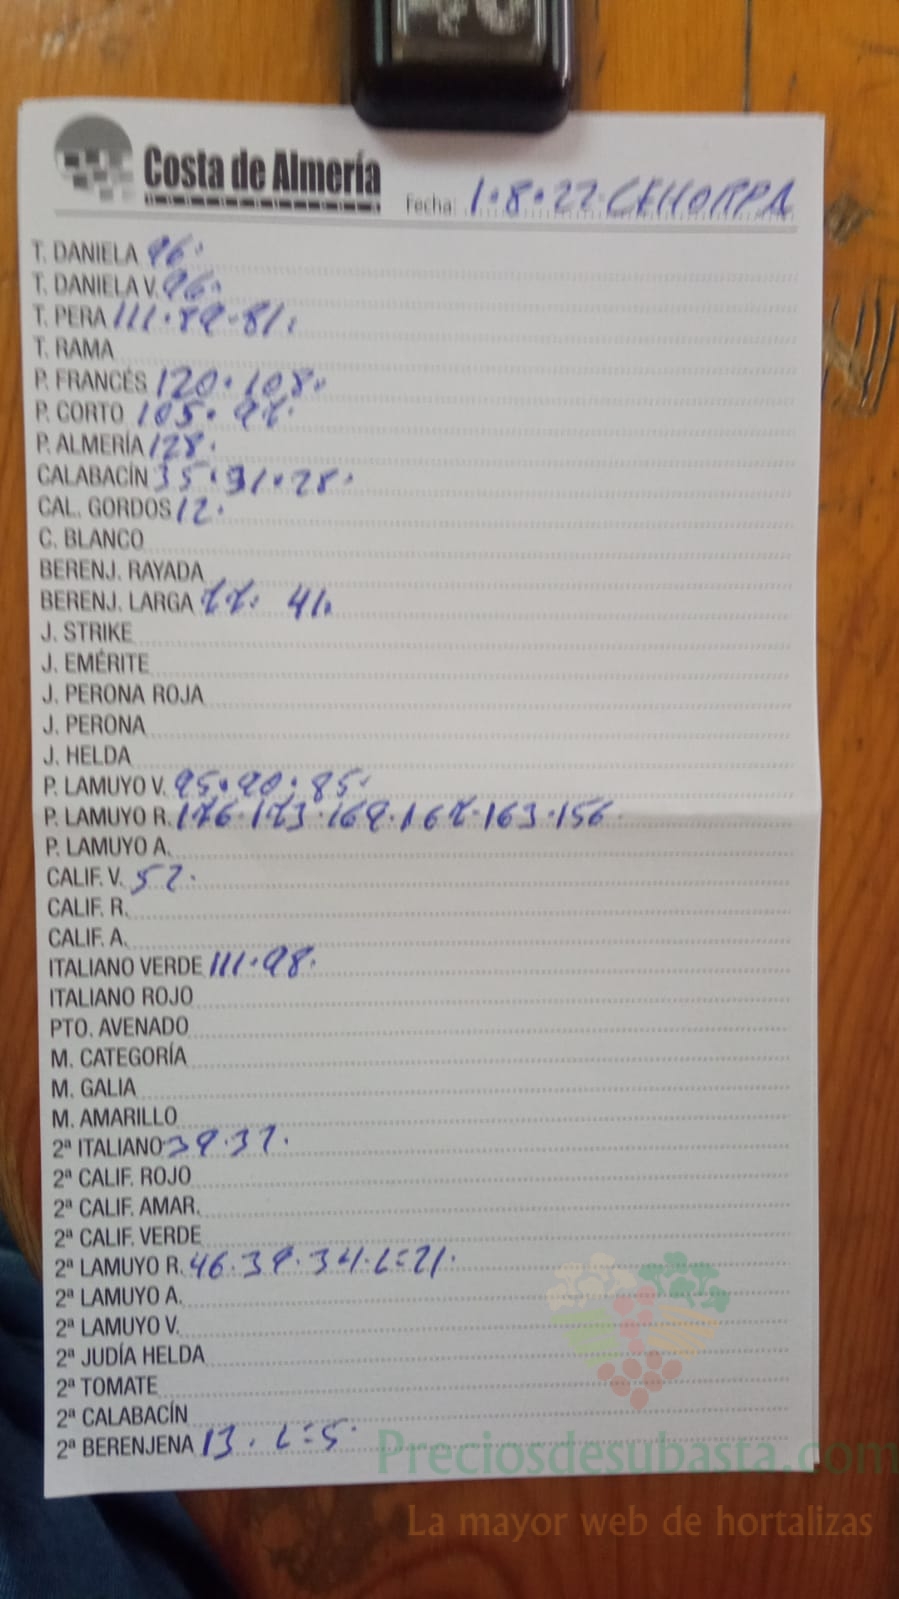 Costa de Almería
Fecha: 1·8·22·CEHORPA
T. DANIELA 96·
T. DANIELA V. 96·
T. PERA 111·89·81·
T. RAMA
P. FRANCÉS 120·108·
P. CORTO 105· 97·
P. ALMERÍA 128·
CALABACÍN 35·31·28·
CAL. GORDOS 12·
C. BLANCO
BERENJ. RAYADA
BERENJ. LARGA 77· 41·
J. STRIKE
J. EMÉRITE
J. PERONA ROJA
J. PERONA
J. HELDA
P. LAMUYO V. 95·90·85·
P. LAMUYO R. 176·173·169·167·163·156·
P. LAMUYO A.
CALIF. V. 52·
CALIF. R.
CALIF. A.
ITALIANO VERDE 111·98·
ITALIANO ROJO
PTO. AVENADO
M. CATEGORÍA
M. GALIA
M. AMARILLO
2ª ITALIANO 39·37·
2ª CALIF. ROJO
2ª CALIF. AMAR.
2ª CALIF. VERDE
2ª LAMUYO R. 46·39·34·L=21·
2ª LAMUYO A.
2ª LAMUYO V.
2ª JUDÍA HELDA
2ª TOMATE
2ª CALABACÍN
2ª BERENJENA 13·L=5·
Preciosdesubasta.com
La mayor web de hortalizas